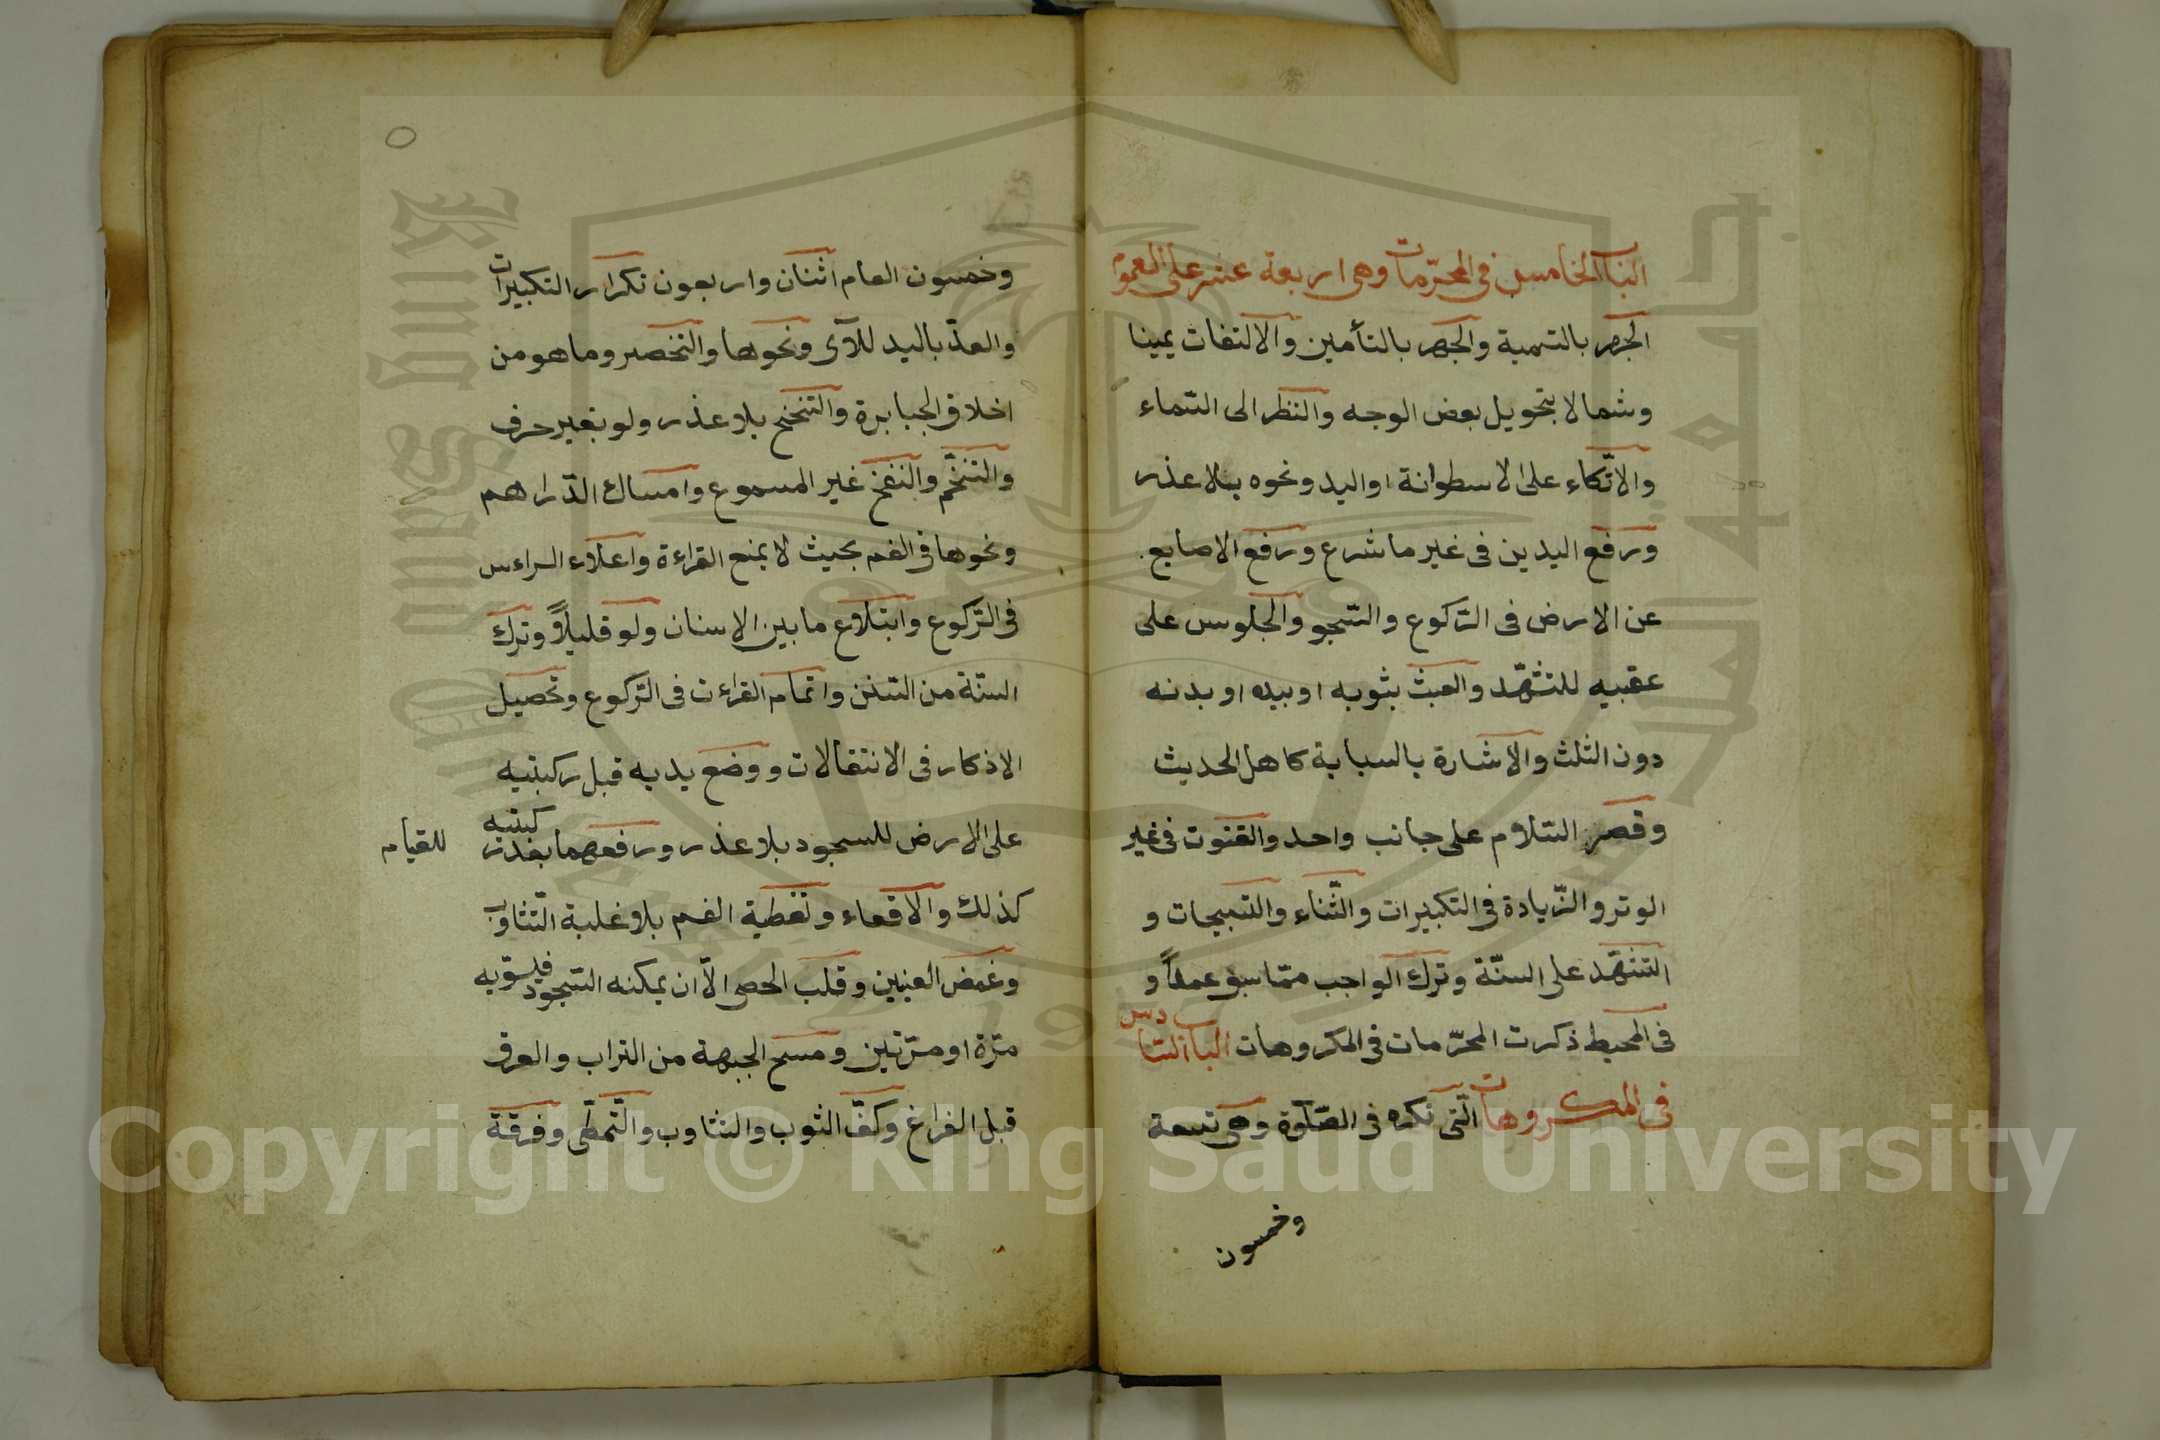 الباب الخامس فى المحرّمات وهى اربعة عشر على العموم
الجهر بالتسمية والجهر بالتأمين والالتفات يمينا
وشمالا بتحويل بعض الوجه والنظر الى السّماء
والاتّكاء على الاسطوانة او اليد ونحوه بلا عذر
ورفع اليدين فى غير ما شرع ورفع الاصابع
عن الارض فى الرّكوع والسّجو والجلوس على
عقبيه للتشهّد والعبث بثوبه او بيده او بدنه
دون الثلث والاشارة بالسبابة كاهل الحديث
وقصر السّلام على جانب واحد والقنوت فى غير
الوتر والزّيادة فى التكبيرات والثّناء والتسبيحات و
التشهّد على السنّة وترك الواجب ممّا سبق عمداً و
فى المحيط ذكرت المحرّمات فى المكروهات الباب السّادس
فى المكروهات الّتى تكره فى الصّلوة وهى تسعة
وخمسون
وخمسون العام اثنان واربعون تكرار التكبيرات
والعدّ باليد للآى ونحوها والتخصر وما هو من
اخلاق الجبابرة والتنحنح بلا عذر ولو بغير حرف
والتنخّم والنفخ غير المسموع وامساك الدّراهم
ونحوها فى الفم بحيث لا يمنع القراءة واعلاء الراءس
فى الرّكوع وابتلاع ما بين الاسنان ولو قليلاً وترك
السنّة من السّنن واتمام القراءت فى الرّكوع وتحصيل
الاذكار فى الانتقالات ووضع يديه قبل ركبتيه
على الارض للسجود بلا عذر ورفعهما بعد ركبتيه للقيام
كذلك والاقعاء وتغطية الفم بلا غلبة التّثاوب
وغمض العينين وقلب الحصى الاّ ان يمكنه السّجود فيسوّيه
مرّة او مرّتين ومسح الجبهة من التراب والعرق
قبل الفراغ وكفّ الثوب والتثاوب والتّمطّى وفرقعة
Copyright © King Saud University